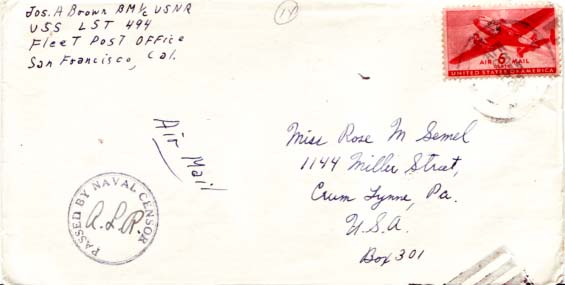 Jos. A Brown BM1/c USNR
USS LST 494
Fleet Post Office
San Francisco, Cal.
14
AIR MAIL
6
CENTS
UNITED STATES OF AMERICA
Air Mail
Miss Rose M Semel
1144 Miller Street,
Crum Lynne, Pa.
U.S.A.
Box 301
PASSED BY NAVAL CENSOR
A.L.R.